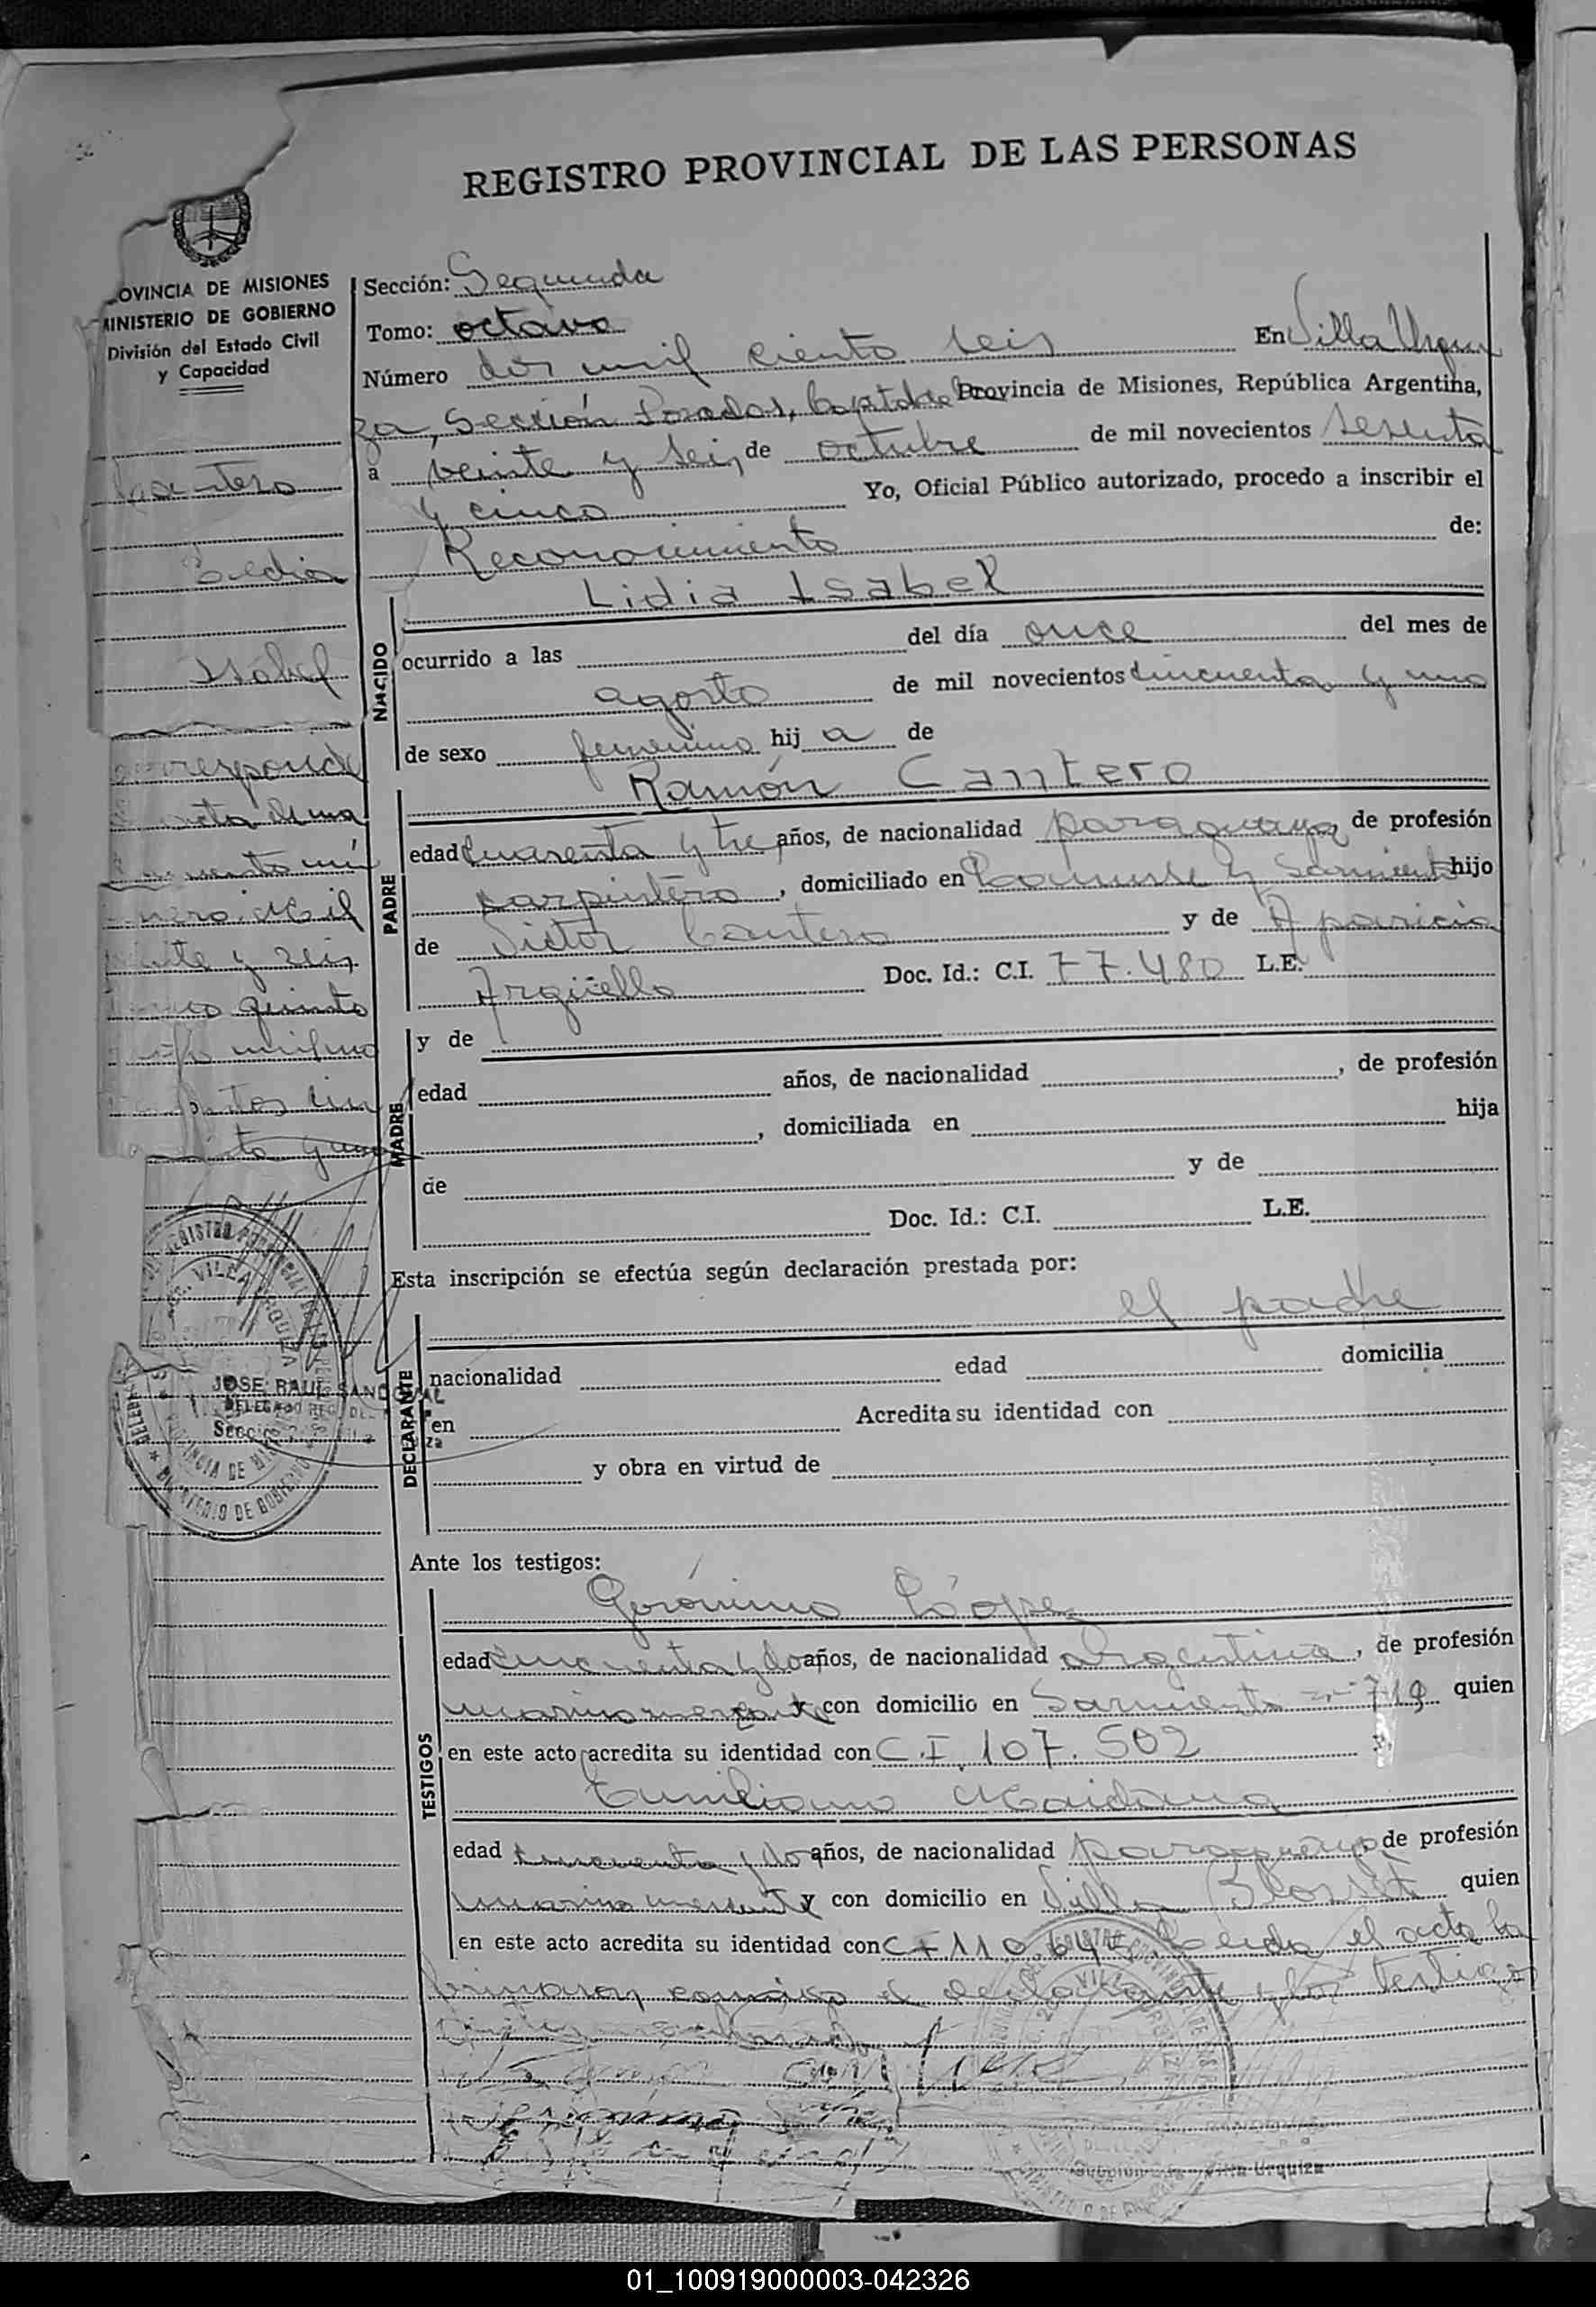 REGISTRO PROVINCIAL DE LAS PERSONAS
OVINCIA DE MISIONES
MINISTERIO DE GOBIERNO
División del Estado Civil
y Capacidad
Cantero
Lidia
Isabel
corresponde
quinto
JOSE RAUL SANDOVAL
Sección: Segunda
Tomo: octavo
Número dos mil ciento seis En Villa Urqui
za, Sección Posadas, Capital de la Provincia de Misiones, República Argentina,
a veinte y seis de octubre de mil novecientos sesenta
y cinco Yo, Oficial Público autorizado, procedo a inscribir el
Reconocimiento de:
NACIDO
Lidia Isabel
ocurrido a las del día once del mes de
agosto de mil novecientos cincuenta y uno
de sexo femenino hij a de
PADRE
Ramón Cantero
edad cuarenta y tres años, de nacionalidad paraguaya de profesión
carpintero, domiciliado en y Sarmiento hijo
de Victor Cantero y de Aparicia
Argüello Doc. Id.: C.I. 77.480 L.E.
MADRE
y de
edad años, de nacionalidad , de profesión
, domiciliada en hija
de y de
Doc. Id.: C.I. L.E.
Esta inscripción se efectúa según declaración prestada por:
DECLARANTE
el padre
nacionalidad edad domicilia
en Acredita su identidad con
y obra en virtud de
Ante los testigos:
TESTIGOS
Gerónimo López
edad cincuenta y dos años, de nacionalidad argentina, de profesión
marino mercante con domicilio en Sarmiento 719 quien
en este acto acredita su identidad con C.I. 107.502
Emiliano Maidana
edad cincuenta y dos años, de nacionalidad paraguayo de profesión
marino mercante y con domicilio en Villa Blosset quien
en este acto acredita su identidad con CI 110.642 Leida el acta la
firmaron conmigo el declarante y los testigos
Villa Urquiza
01_100919000003-042326